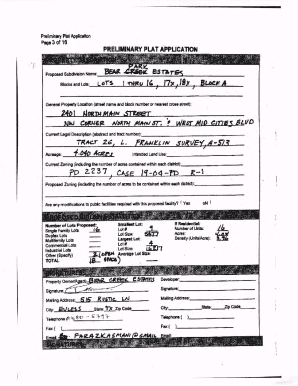 Preliminary Plat Application
Page 3 of 10
PRELIMINARY PLAT APPLICATION
PARK
Proposed Subdivision Name: BEAR CREEK ESTATES
Blocks and Lots: LOTS 1 THRU 16, 17X, 18X, BLOCK A
General Property Location (street name and block number or nearest cross street):
2401 NORTH MAIN STREET
NW CORNER NORTH MAIN ST. & WEST MID CITIES BLVD
Current Legal Description (abstract and tract number):
TRACT 26, L. FRANKLIN SURVEY, A-513
Acreage: 4.040 ACRES Intended Land Use:
Current Zoning (including the number of acres contained within each district):
PD 2237, CASE 19-04-PD R-1
Proposed Zoning (including the number of acres to be contained within each district):
Are any modifications to public facilities required with this proposed facility? Yes
Number of Lots Proposed: Smallest Lot: If Residential:
Single Family Lots 16 Lot # 9 Number of Units: 16
Duplex Lots Lot Size: Acres:
Multifamily Lots Largest Lot: Density (Units/Acre):
Commercial Lots Lot #
Industrial Lots Lot Size:
Other (Specify) 2 (OPEN Average Lot Size:
TOTAL 18 SPACE)
Property Owner/Agent: BEAR CREEK ESTATES Developer:
Signature: Signature:
Mailing Address: 515 RUSTIC LN Mailing Address:
City EULESS State TX Zip Code City State Zip Code
Telephone Telephone ( )
Fax ( ) Fax ( )
Email FARAZKASMANI@GMAIL Email